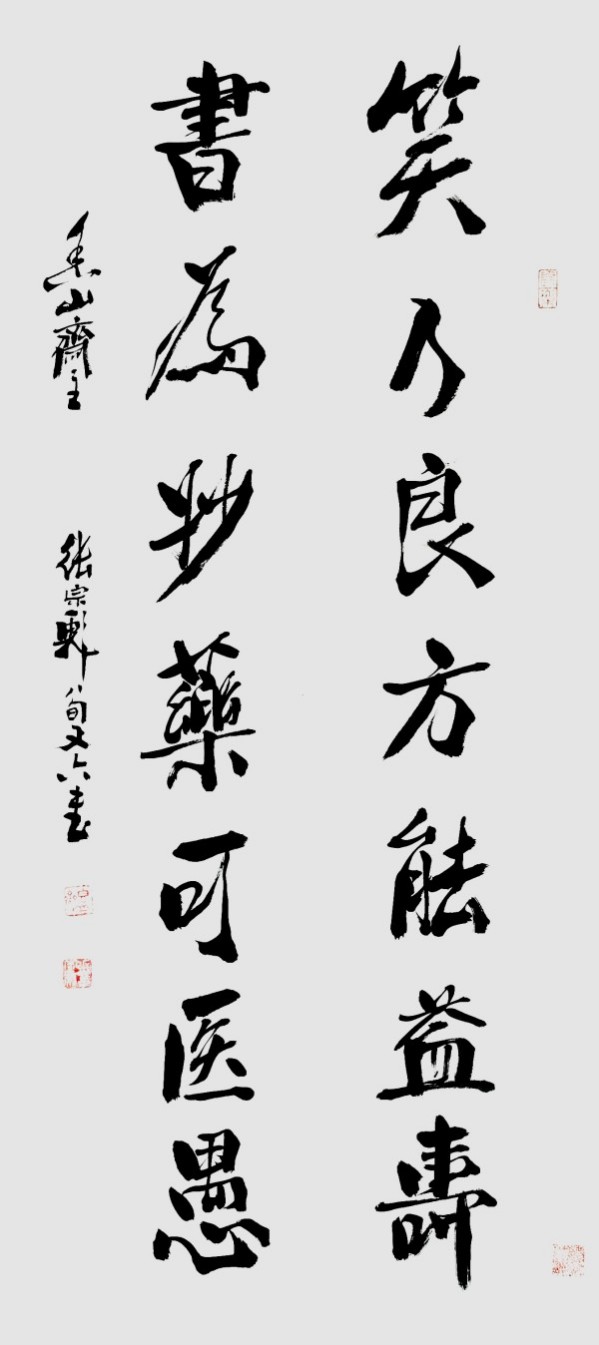 笑乃良方能益壽
書為妙藥可医愚
香山齋主 張宗彪八旬又六書